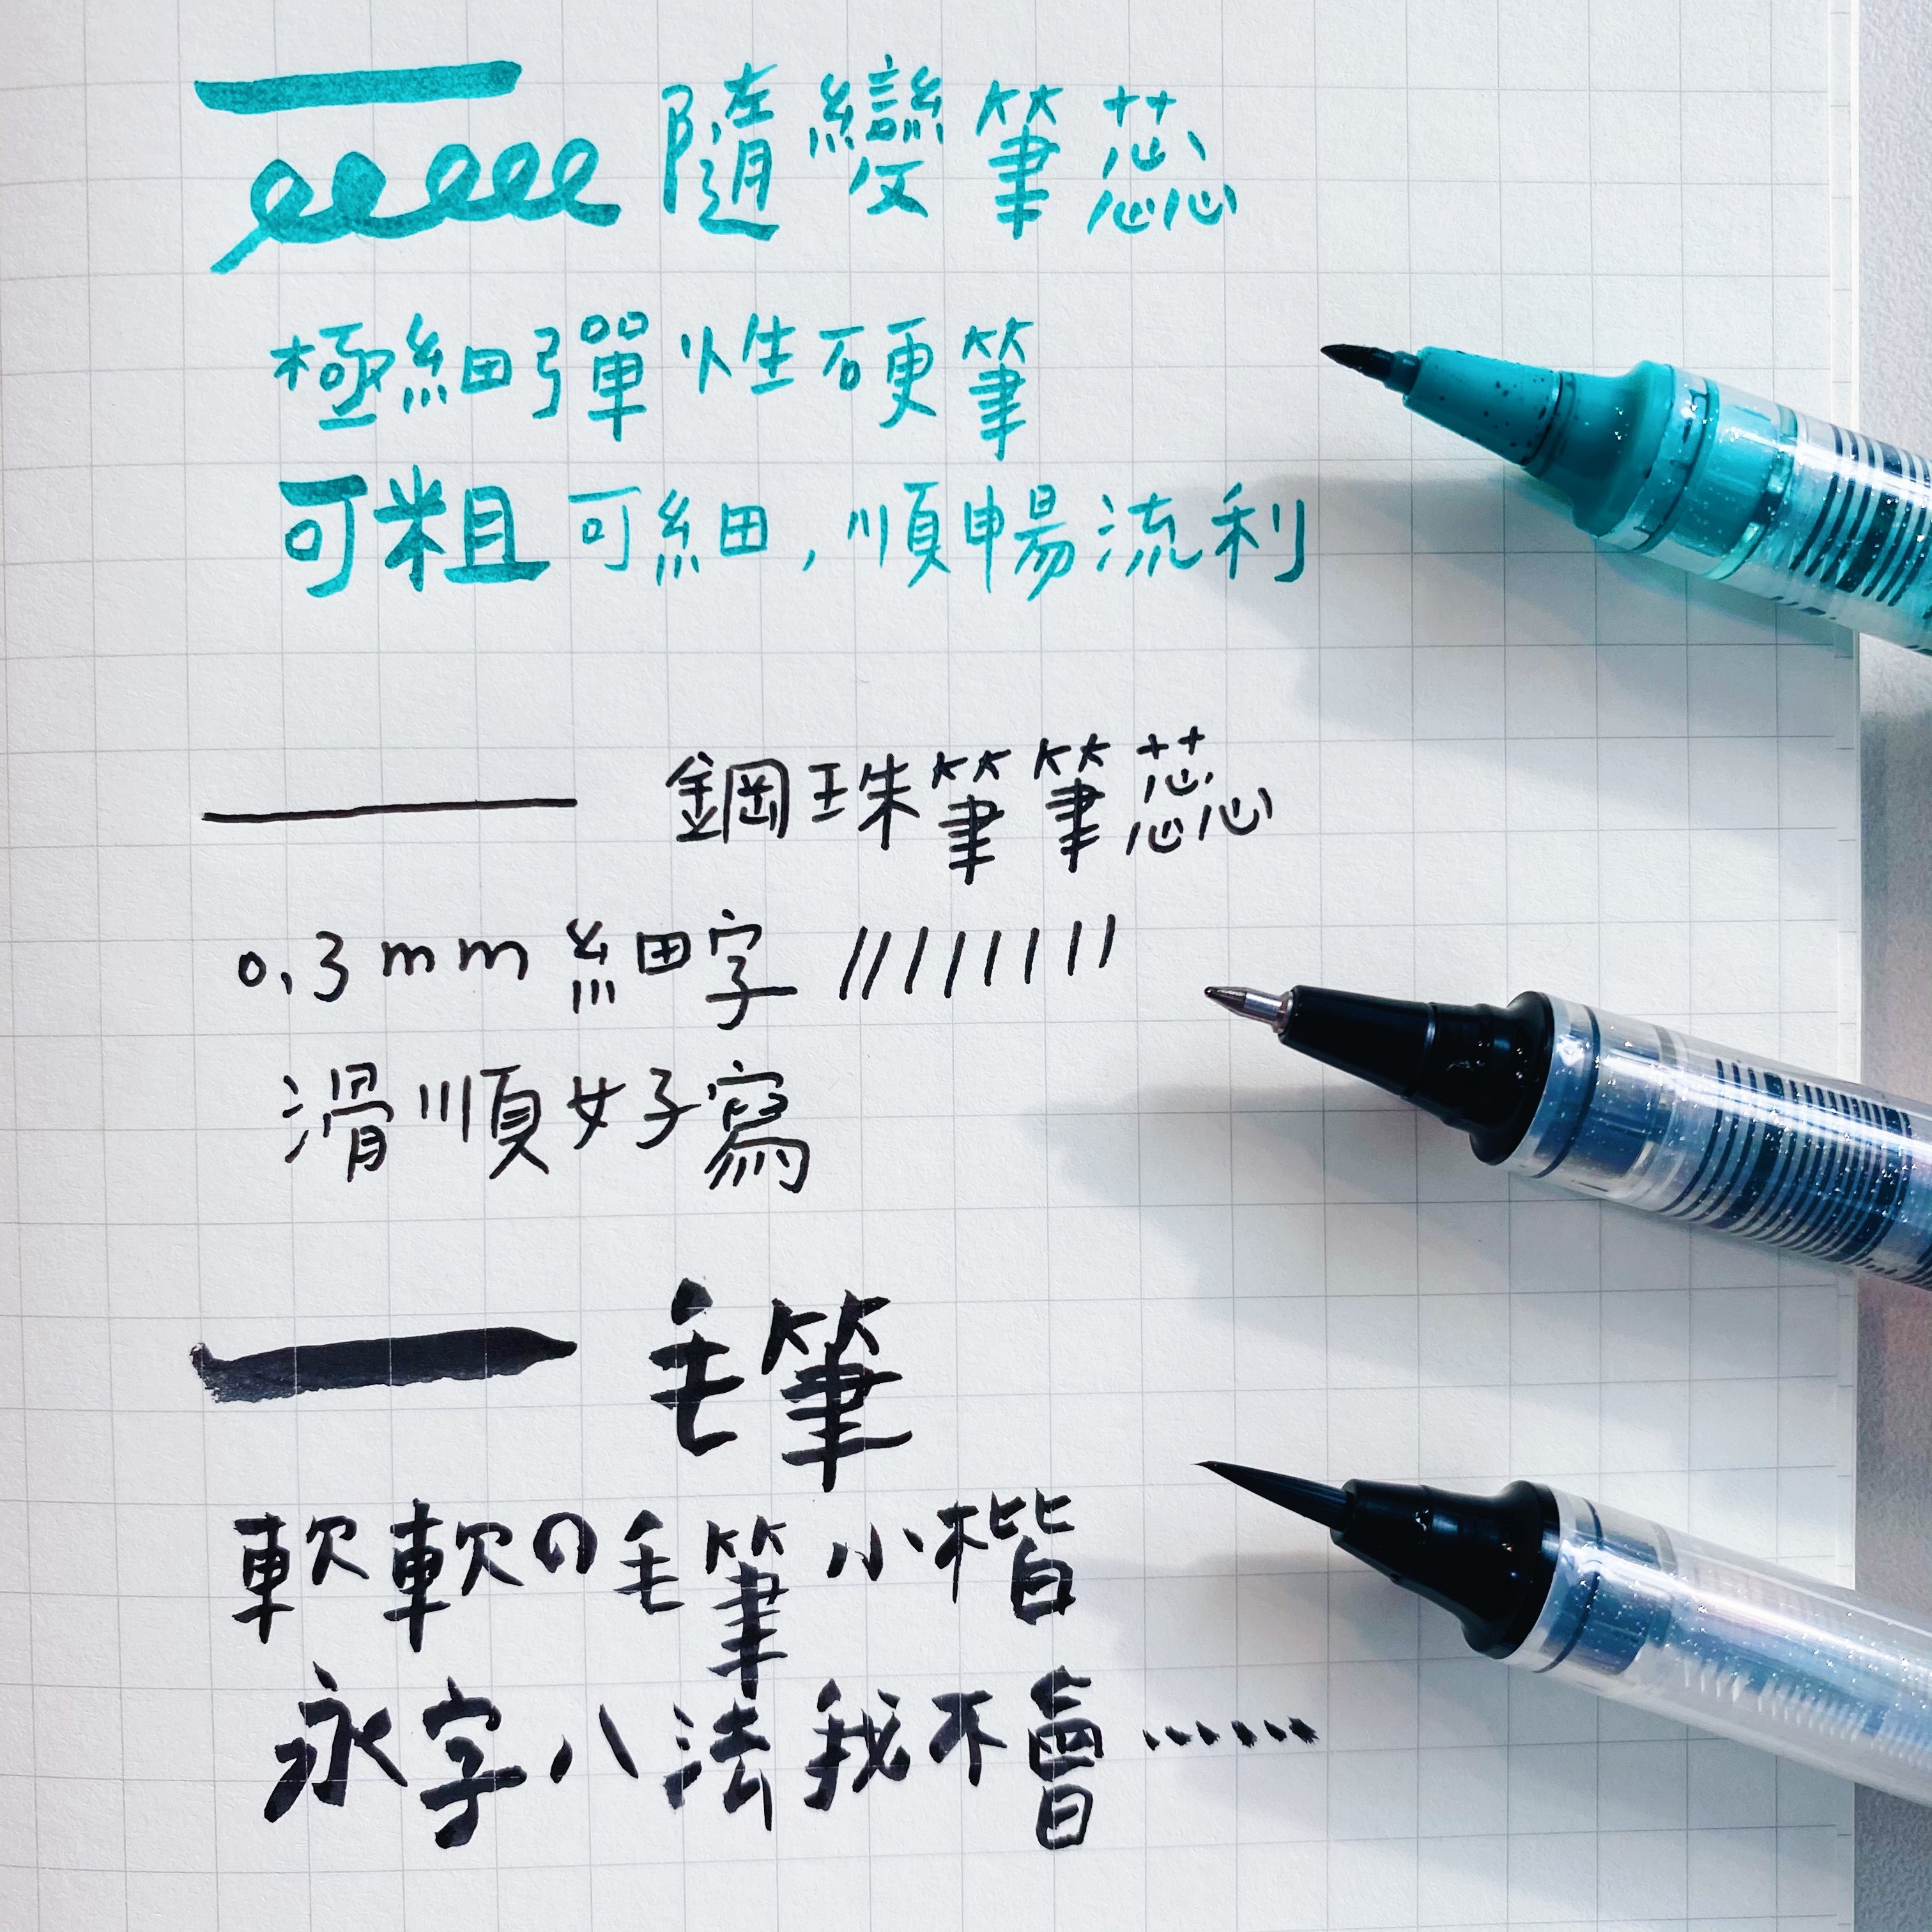 隨變筆蕊
極細彈性硬筆
可粗可細,順暢流利
鋼珠筆筆蕊
0.3mm 細字
滑順好寫
毛筆
軟軟の毛筆小楷
永字八法我不會……